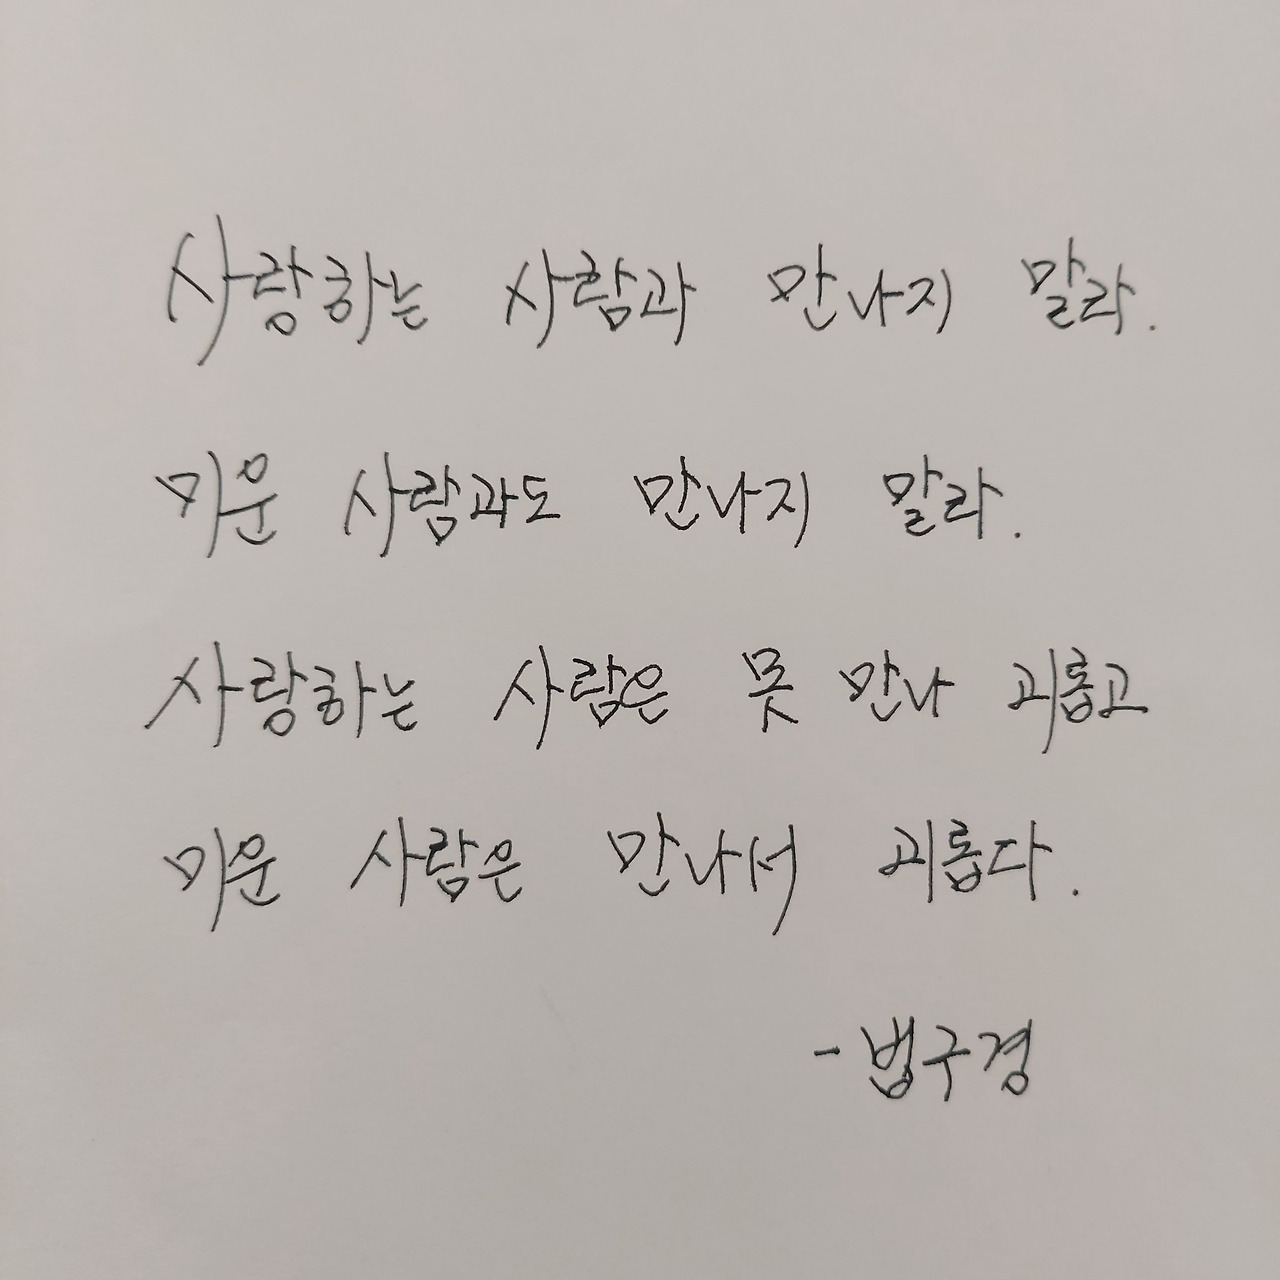 사랑하는 사람과 만나지 말라.
미운 사람과도 만나지 말라.
사랑하는 사람은 못 만나 괴롭고
미운 사람은 만나서 괴롭다.
- 법구경